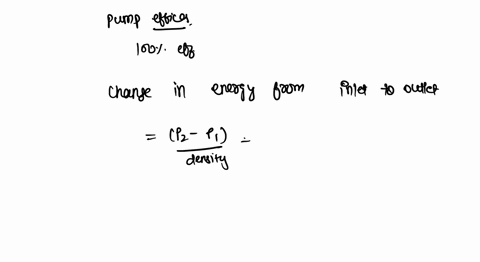 pump effica.
100% eff
change in energy from inlet to outlet
= (P2 - P1) =
density